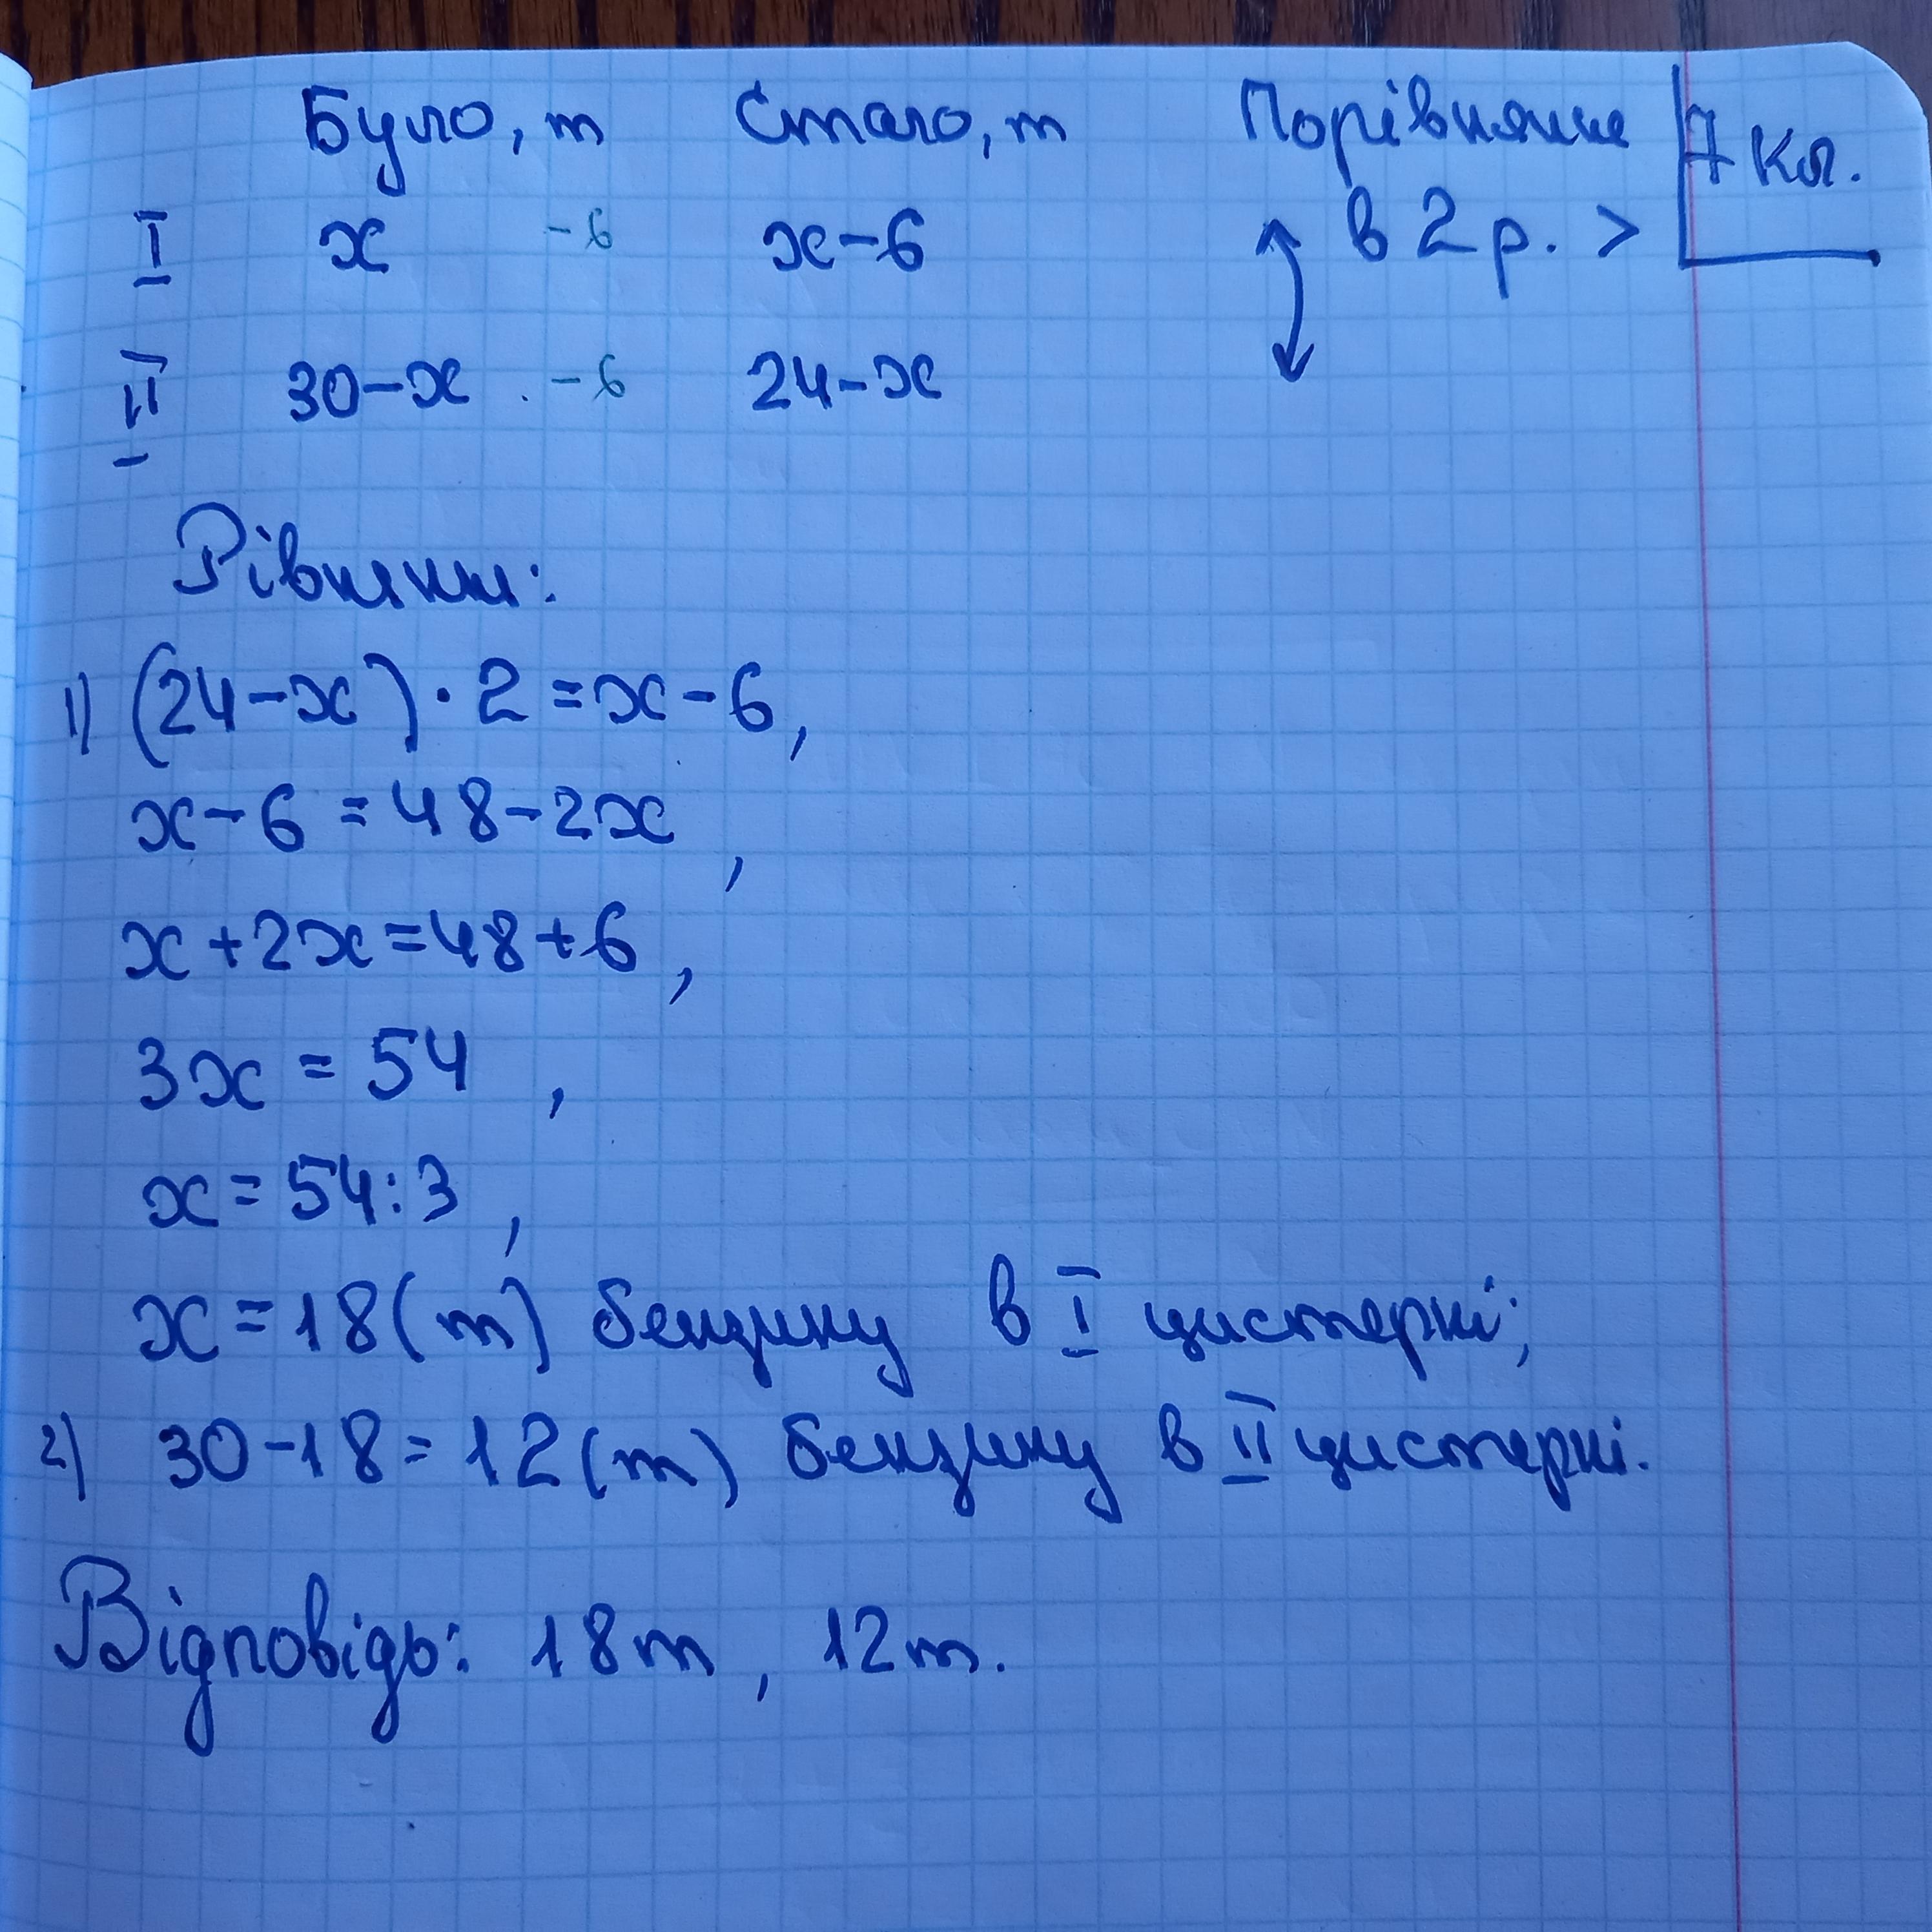 Було, т Стало, т Порівняння 7 кл.
I x -6 x-6 в 2 р. >
II 30-x -6 24-x
Рівняння:
1) (24-x)·2=x-6,
x-6=48-2x,
x+2x=48+6,
3x=54,
x=54:3,
x=18(т) бензину в I цистерні;
2) 30-18=12(т) бензину в II цистерні.
Відповідь: 18т, 12т.